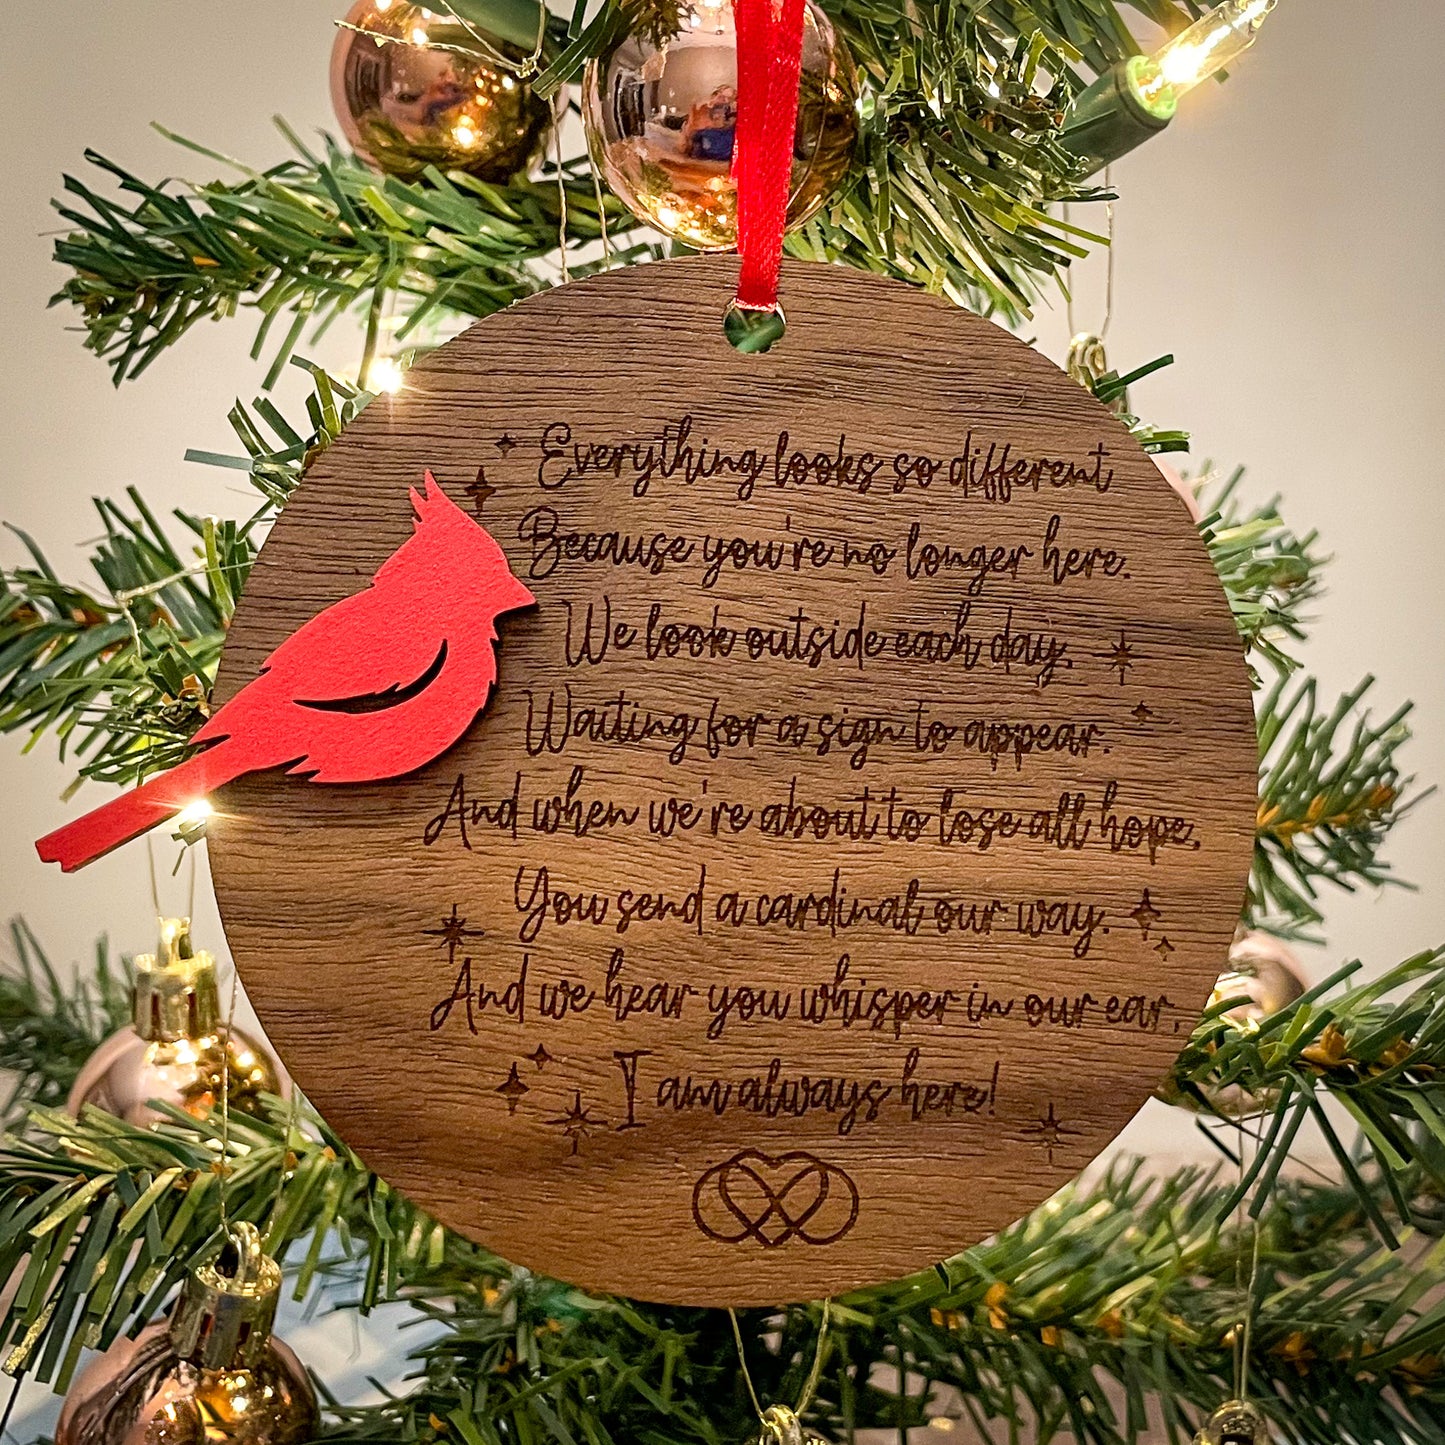 Everything looks so different
Because you're no longer here.
We look outside each day,
Waiting for a sign to appear.
And when we're about to lose all hope,
You send a cardinal our way.
And we hear you whisper in our ear,
I am always here!